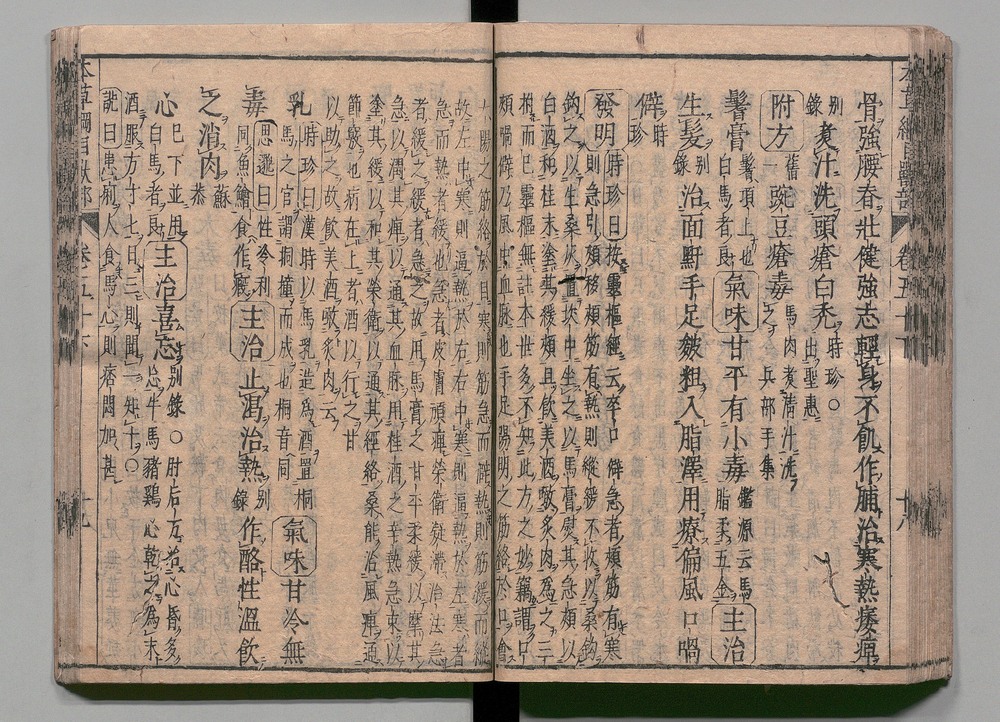 骨強腰脊壯健強志輕身不飢作脯治寒熱痿痺
別錄煮汁洗頭瘡白禿時珍○出聖惠
附方舊一豌豆瘡毒馬肉煮清汁洗之兵部手集
鬐膏鬐項上也白馬者良氣味甘平有小毒鑑源云馬脂柔五金主治
生髮別錄治面䵟手足皴粗入脂澤用療偏風口喎
僻時珍
發明時珍曰按靈樞經云卒口僻急者頰筋有寒
則急引頰移頰筋有熱則縱緩不收以桑鉤
鉤之以生桑灰置坎中坐之以馬膏熨其急頰以
白酒和桂末塗其緩頰且飲美酒噉炙肉為之三
拊而已靈樞無註本世多不知此方之妙竊謂口
頰喎僻乃風中血脈也手足陽明之筋絡於口會
太陽之筋絡於目寒則筋急而僻熱則筋緩而縱
故左中寒則逼熱於右右中寒則逼熱於左寒者
急而熱者緩也急者皮膚頑痺榮衛凝滯治法急
者緩之緩者急之故用馬膏之甘平柔緩以摩其
急以潤其痺以通其血脈用桂酒之辛熱急束以
塗其緩以和其榮衛以通其經絡桑能治風痺通
節竅也病在上者酒以行之甘
以助之故飲美酒噉炙肉云
乳時珍曰漢時以馬乳造為酒置桐
馬之官謂桐撞而成也桐音同氣味甘冷無
毒同魚鱠食作瘕思邈曰性冷利主治止渴治熱別錄作酪性溫飲
之消肉蘇恭
心已下並用白馬者良主治喜忘別錄○肘后方治心昏多忘牛馬豬鷄心乾之為末
酒服方寸七日三則聞一知十○
詵曰患痢人食馬心則痞悶加甚
卷五十下
卷五十下
十九